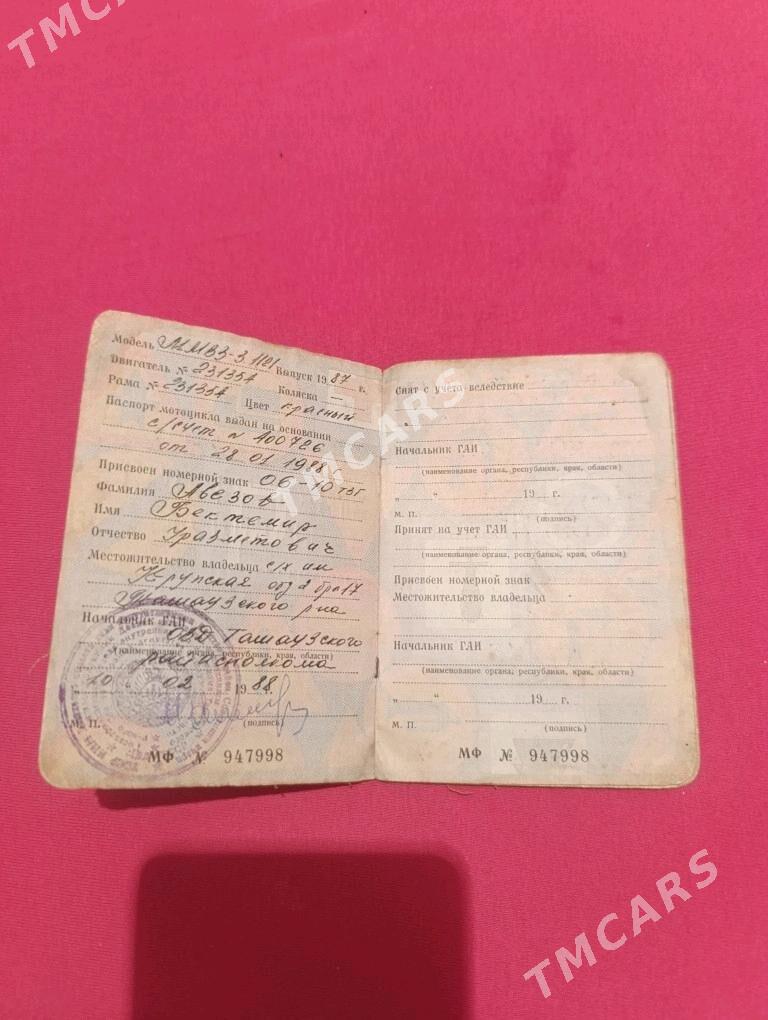 TMCARS
Модель ММВЗ-3.1121
Двигатель № 231354 Выпуск 1987 г.
Рама № 231354 Коляска
Цвет красный
Паспорт мотоцикла выдан на основании
с/счет № 400726
от 28 01 1988
Присвоен номерной знак 06-10 тзг
Фамилия Авезов
Имя Бектемир
Отчество Уразметович
Местожительство владельца с/х им
Крупская
Ташаузского р-на
Начальник ГАИ ОВД Ташаузского
(наименование органа, республики, края, области)
райисполкома
„10 “ 02 1988 г.
М. П. (подпись)
МФ № 947998
Снят с учета вследствие
Начальник ГАИ
(наименование органа, республики, края, области)
„ “ 19 г.
М. П. (подпись)
Принят на учет ГАИ
(наименование органа, республики, края, области)
Присвоен номерной знак
Местожительство владельца
Начальник ГАИ
(наименование органа, республики, края, области)
„ “ 19 г.
М. П. (подпись)
МФ № 947998
TMCARS
TMCARS
TMCARS